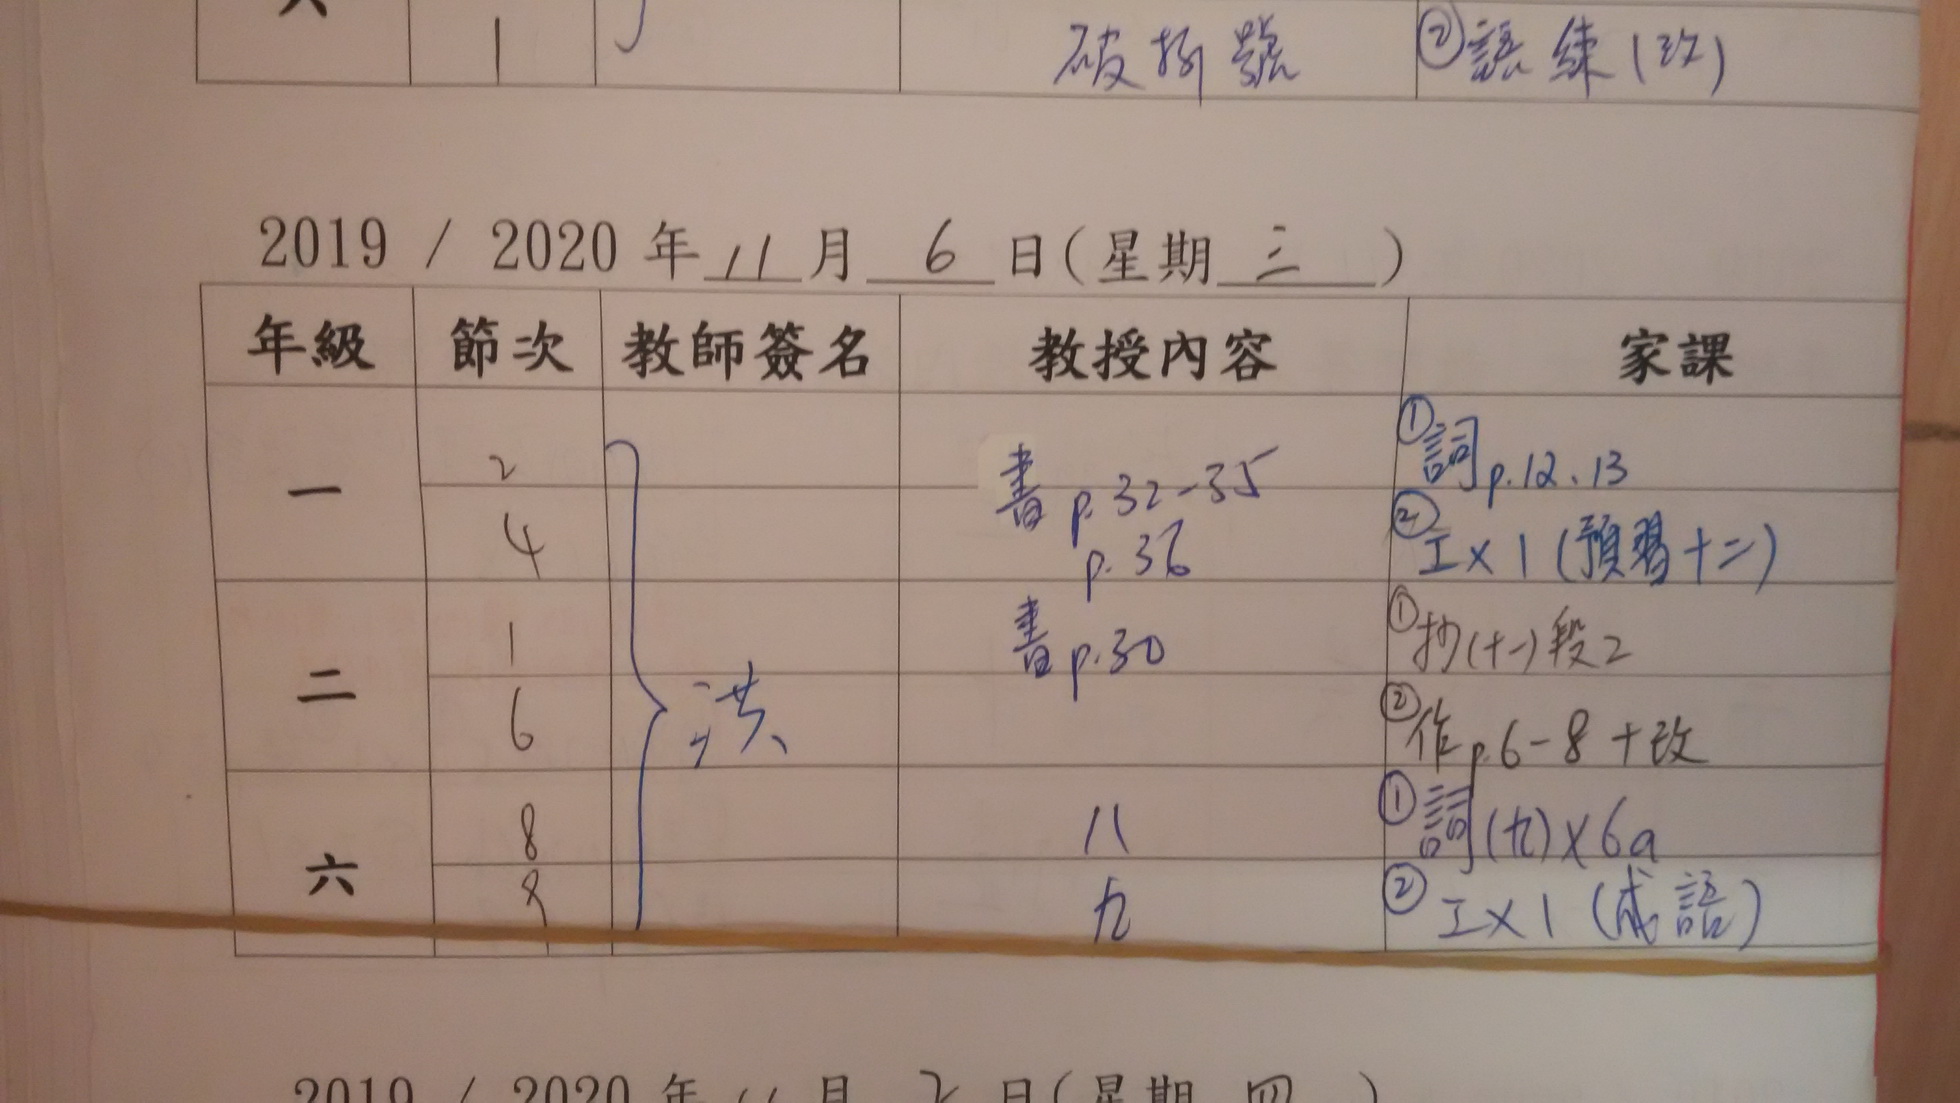 六
1 破折號 ②語練1(改)
2019 / 2020 年 11 月 6 日(星期 三 )
年級 節次 教師簽名 教授內容 家課
一 2 書 p.32-35 ①詞 p.12、13
4 p.36 ②工x1 (預習十二)
二 1 書 p.30 ①抄(十一)段2
6 洪 ②作 p.6-8+改
六 8 八 ①詞(九)x6a
九 ②工x1 (成語)
2019 / 2020 年 11 月 日(星期 四 )